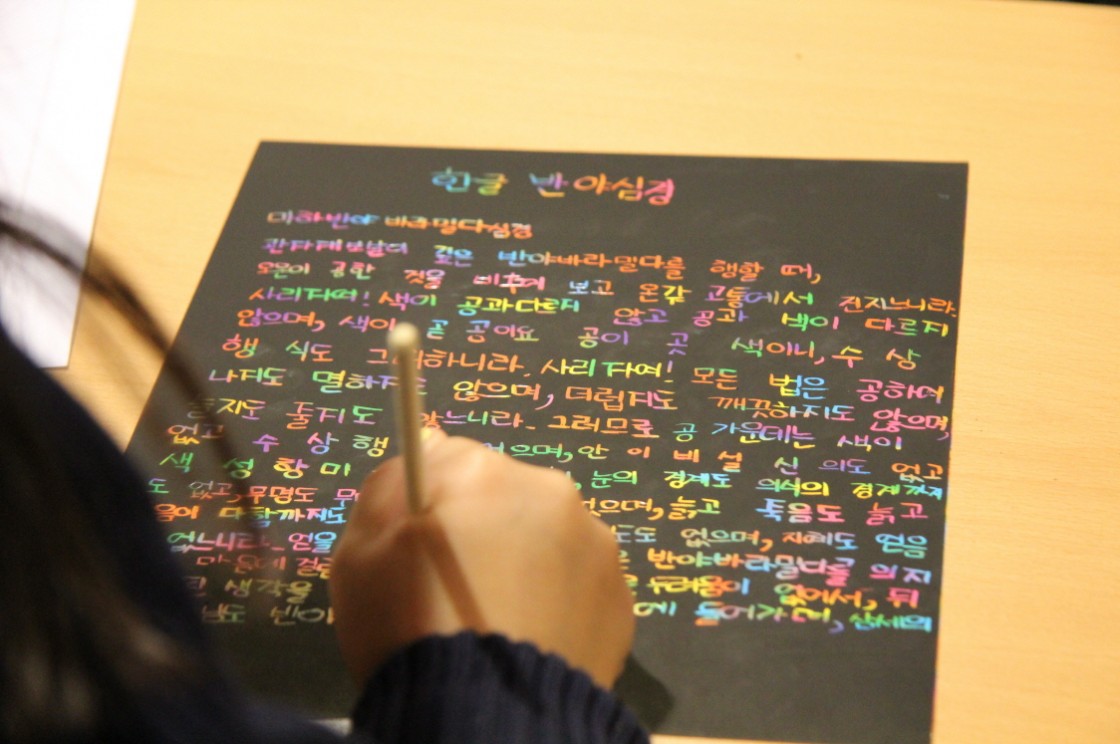 한글 반야심경
마하반야 바라밀다심경
관자재보살이 깊은 반야바라밀다를 행할 때,
오온이 공한 것을 비추어 보고 온갖 고통에서 건지느니라.
사리자여! 색이 공과다르지 않고 공과 색이 다르지
않으며, 색이 곧 공이요 공이 곳 색이니, 수 상
행 식도 그 하니라. 사리자여! 모든 법은 공하여
나지도 멸하지 않으며, 더럽지도 깨끗하지도 않으며,
늘지도 줄지도 않느니라. 그러므로 공 가운데는 색이
없고 수 상 행 없으며, 안 이 비 설 신 의도 없고
색 성 향 미 눈의 경계도 의식의 경계까지
도 없고, 무명도 없으며, 늙고 죽음도 늙고
음이 다함까지도 도도 없으며, 지혜도 얻음
없느니라. 얻을 반야바라밀다를 의지
마음에 걸림 두려움이 없어서, 뒤
된 생각을 에 들어가며, 삼세의
님도 반야